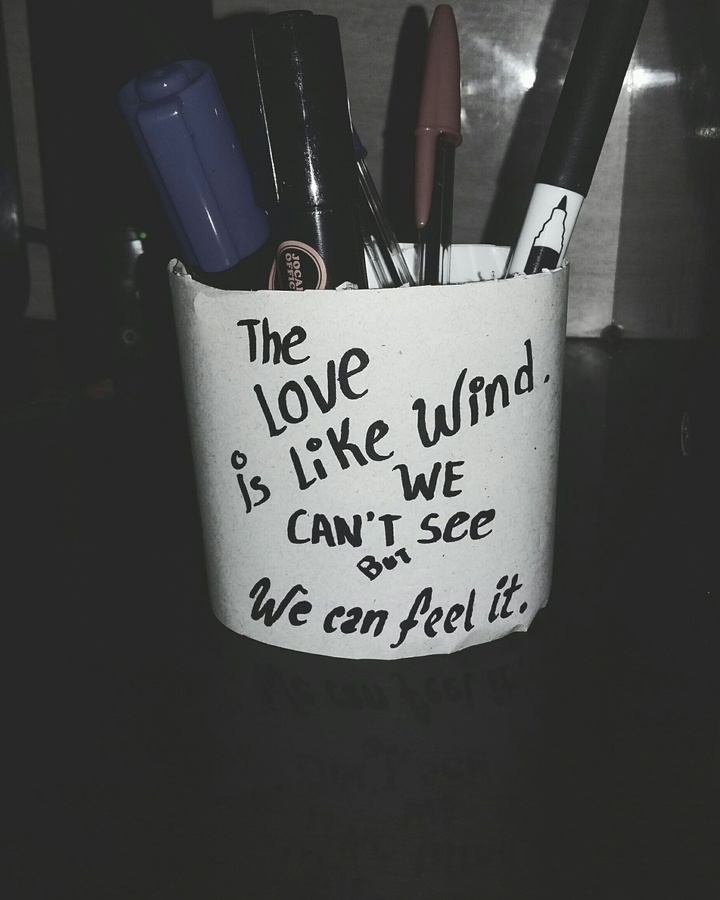 The
Love
is Like Wind.
WE
CAN'T see
BuT
We can feel it.
OFFIC